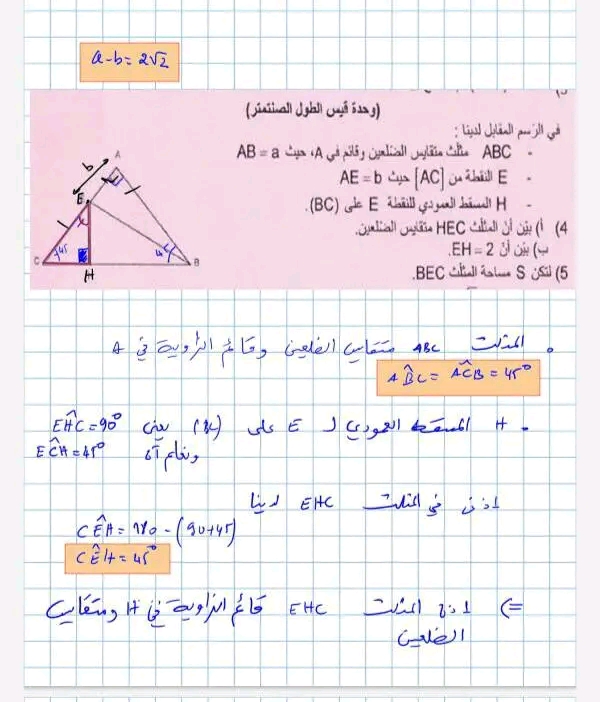 a-b= 2√2
(وحدة قيس الطول الصنتمتر)
في الرسم المقابل لدينا :
- ABC مثلث متقايس الضلعين وقائم في A، حيث AB = a
- E النقطة من [AC] حيث AE = b
- H المسقط العمودي للنقطة E على (BC).
4) أ) بيّن أنّ المثلث HEC متقايس الضلعين.
ب) بيّن أنّ EH = 2.
5) لتكن S مساحة المثلث BEC.
b
A
E
x
C
45
H
B
. المثلث ABC متقايس الضلعين وقائم الزاوية في A
AB̂C = AĈB = 45°
. H المسقط العمودي لـ E على (BC) يعني EĤC=90°
ونعلم أن EĈH=45°
اذن في المثلث EHC لدينا
CÊH= 180 - (90+45)
CÊH= 45°
=> اذن المثلث EHC قائم الزاوية في H ومتقايس
الضلعين